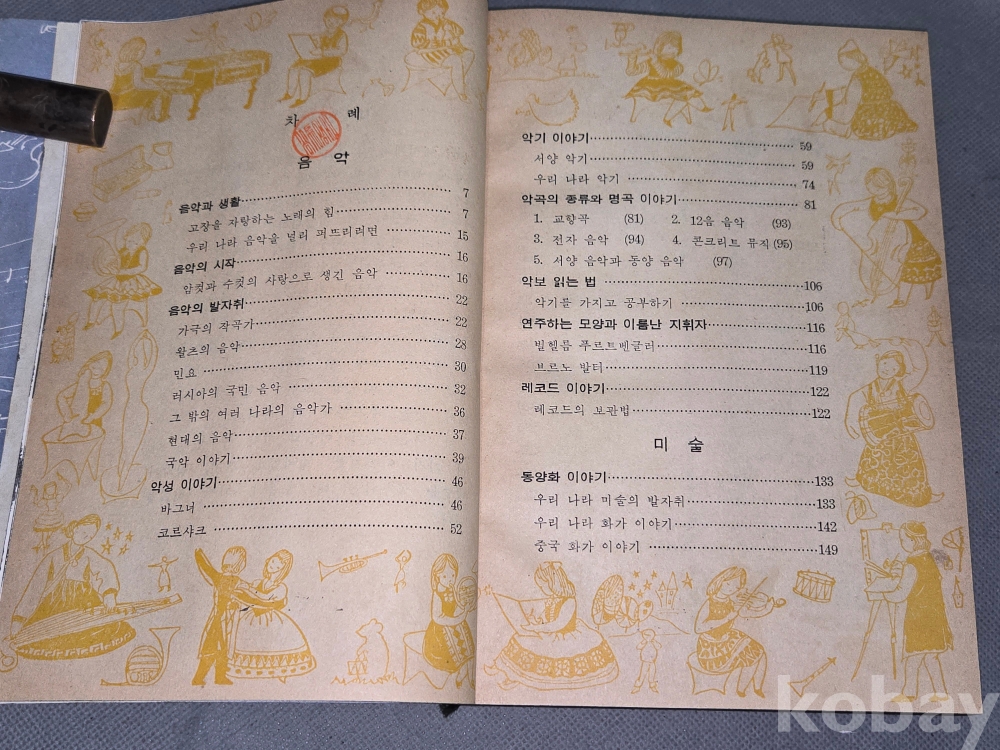 차 례
음 악
음악과 생활 7
고장을 자랑하는 노래의 힘 7
우리 나라 음악을 널리 퍼뜨리려면 15
음악의 시작 16
암컷과 수컷의 사랑으로 생긴 음악 16
음악의 발자취 22
가극의 작곡가 22
왈츠의 음악 28
민요 30
러시아의 국민 음악 32
그 밖의 여러 나라의 음악가 36
현대의 음악 37
국악 이야기 39
악성 이야기 46
바그너 46
코르샤크 52
악기 이야기 59
서양 악기 59
우리 나라 악기 74
악곡의 종류와 명곡 이야기 81
1. 교향곡 (81) 2. 12음 음악 (93)
3. 전자 음악 (94) 4. 콘크리트 뮤직 (95)
5. 서양 음악과 동양 음악 (97)
악보 읽는 법 106
악기를 가지고 공부하기 106
연주하는 모양과 이름난 지휘자 116
빌헬름 푸르트벤글러 116
브르노 발터 119
레코드 이야기 122
레코드의 보관법 122
미 술
동양화 이야기 133
우리 나라 미술의 발자취 133
우리 나라 화가 이야기 142
중국 화가 이야기 149
kobay